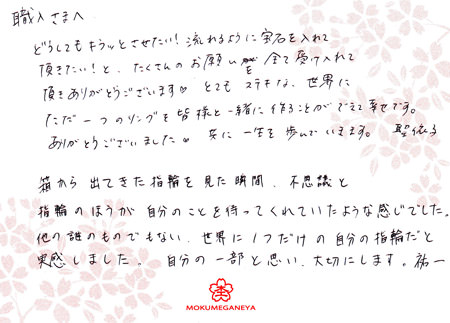 職人さまへ
どうしてもキラッとさせたい!流れるように宝石を入れて
頂きたい!と、たくさんのお願いを全て受け入れて
頂きありがとうございます♡とてもステキな、世界に
ただ一つのリングを皆様と一緒に作ることができて幸せです。
ありがとうございました♡ 共に一生を歩んでいきます。 聖依子
箱から出てきた指輪を見た瞬間、不思議と
指輪のほうが自分のことを待ってくれていたような感じでした。
他の誰のものでもない、世界に1つだけの自分の指輪だと
実感しました。 自分の一部と思い、大切にします。祐一
MOKUMEGANEYA